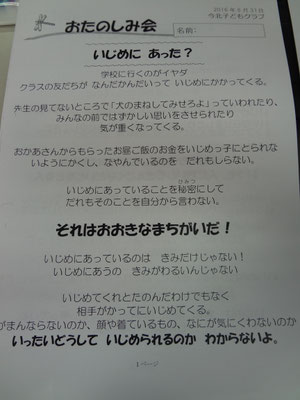 2016年8月31日
今北子どもクラブ
おたのしみ会
名前:
いじめに あった?
学校に行くのがイヤダ
クラスの友だちが なんだかんだいって いじめにかかってくる。
先生の見てないところで「犬のまねしてみせろよ」っていわれたり、
みんなの前ではずかしい思いをさせられたり
気が重くなってくる。
おかあさんからもらったお昼ご飯のお金をいじめっ子にとられな
いようにかくし、なやんでいるのを だれもしらない。
いじめにあっていることを秘密にして
だれもそのことを自分から言わない。
それはおおきなまちがいだ!
いじめにあっているのは きみだけじゃない!
いじめにあうの きみがわるいんじゃない
いじめてくれとたのんだわけでもなく
相手がかってにいじめてくる。
がまんならないのか、顔や着ているもの、なにが気にくわないのか
いったいどうして いじめられるのか わからないよ。
1ページ